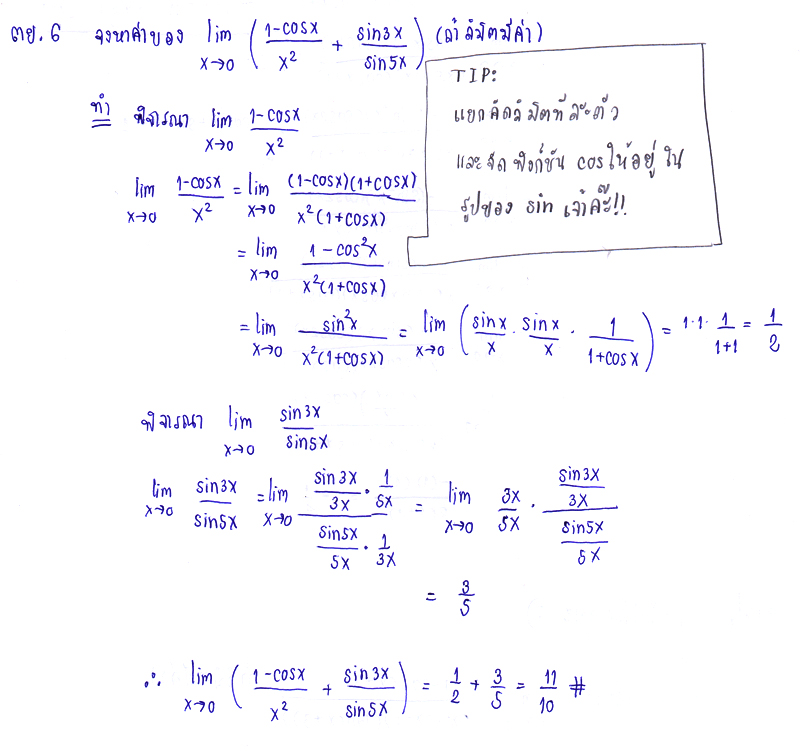 ตย. 6 จงหาค่าของ lim x→0 ( (1-cosx)/x² + sin3x/sin5x ) (ถ้าลิมิตมีค่า)
TIP:
แยกคิดลิมิตทีละตัว
และจัดฟังก์ชัน cos ให้อยู่ใน
รูปของ sin เจ้าค๊ะ!!
ทำ พิจารณา lim x→0 (1-cosx)/x²
lim x→0 (1-cosx)/x² = lim x→0 (1-cosx)(1+cosx)/x²(1+cosx)
= lim x→0 (1-cos²x)/x²(1+cosx)
= lim x→0 sin²x/x²(1+cosx) = lim x→0 ( sinx/x · sinx/x · 1/(1+cosx) ) = 1·1· 1/(1+1) = 1/2
พิจารณา lim x→0 sin3x/sin5x
lim x→0 sin3x/sin5x = lim x→0 (sin3x/3x · 1/5x)/(sin5x/5x · 1/3x) = lim x→0 3x/5x · (sin3x/3x)/(sin5x/5x)
= 3/5
∴ lim x→0 ( (1-cosx)/x² + sin3x/sin5x ) = 1/2 + 3/5 = 11/10 #